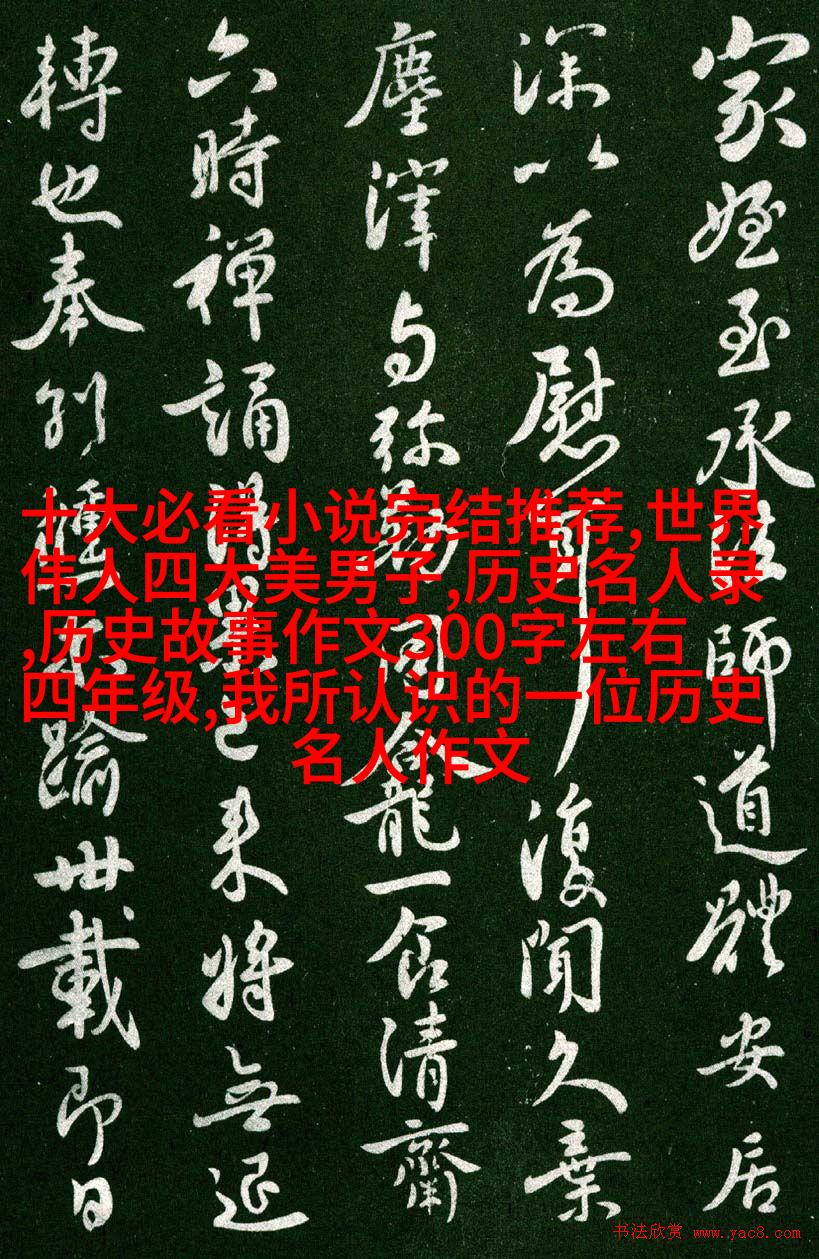 家姪至承法師道體安居
深以為慰耳復聞久棄
塵滓与弥勒同龕一食清齋
六時禅誦得果已来將無退
轉也奉别儵尔踰卅載即日
十大必看小说完结推荐,世界
伟人四大美男子,历史名人录
,历史故事作文300字左右
四年级,我所认识的一位历史
名人作文
书法欣赏 www.yac8.com